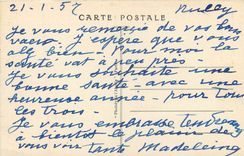 21-1-57 Neuilly
CARTE POSTALE
Je vous remercie de vos bons
vœux J'espère que vous
allez bien - Pour moi la
santé va à peu près -
je vous souhaite une
bonne santé - avec une
heureuse année - pour tous
les trois -
Je vous embrasse tendrement
à bientôt le plaisir de
vous voir tante Madeleine